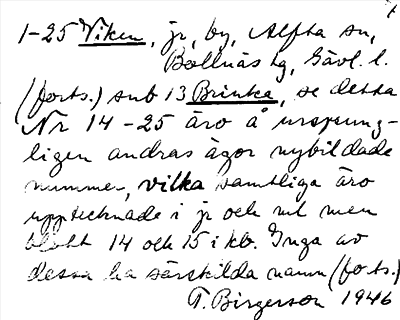 1-25 Viken, jr, by, Alfta sn,
Bollnäs tg, Gävl. l.
(forts.) sub 13 Brinka, se dessa
Nr 14-25 äro å ursprung-
ligen andras ägor nybildade
nummer, vilka samtliga äro
upptecknade i jr och ml men
blott 14 och 15 i kb. Inga av
dessa ha särskilda namn (forts.)
T. Birgerson 1946